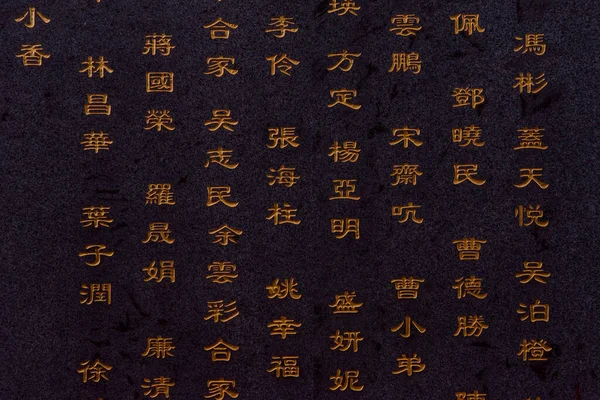 馮彬 蓋天悅 吳泊橙
佩 鄧曉民 曹德勝 陳
雲鵬 宋齋吭 曹小弟
瑛 方定 楊亞明 盛妍妮
李伶 張海柱 姚幸福
合家 吳志民 余雲彩合家
蔣國榮 羅晟娟 廉清
林昌華 葉子潤 徐
小香